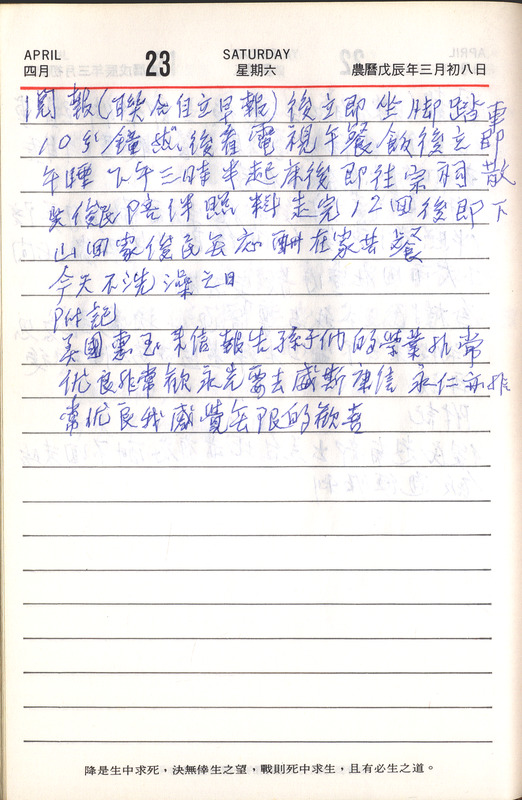 APRIL 23 SATURDAY
四月 星期六 農曆戊辰年三月初八日
閱報(聯合自立早報)後立即坐脚踏車
10分鐘 後看電視午餐飯後立即
午睡下午三時半起床後即往宗祠散
步俊民陪伴照料走完12回後即下
山回家俊民無應酬在家共餐
今天不洗澡之日
附記
美國惠玉來信報告孫子們的學業非常
优良非常歡永先要去威斯康信永仁亦非
常优良我感覺無限的歡喜
降是生中求死,決無倖生之望,戰則死中求生,且有必生之道。